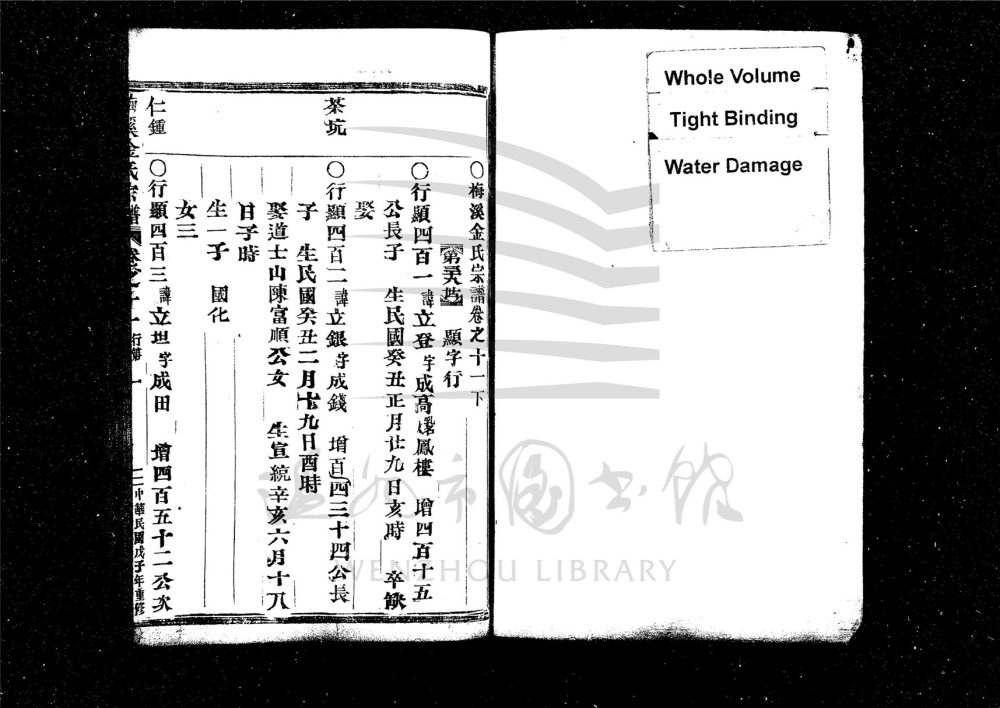 Whole Volume
Tight Binding
Water Damage
〇梅溪金氏宗譜卷之十一下
顯字行
〇行顯四百一諱立登字成高鳳樓 增四百十五
公長子 生民國癸丑正月廿九日亥時 卒缺
娶
茶坑
〇行顯四百二諱立銀字成錢 增百四三十四公長
子 生民國癸丑二月十九日酉時
娶道士山陳富順公女 生宣統辛亥六月十八
日子時
生一子 國化
女三
仁鍾
〇行顯四百三諱立坦字成田 增四百五十二公次
溪金氏宗譜 卷之十一 行第 一 中華民國戊子年重修
溫州市圖書館
WENZHOU LIBRARY